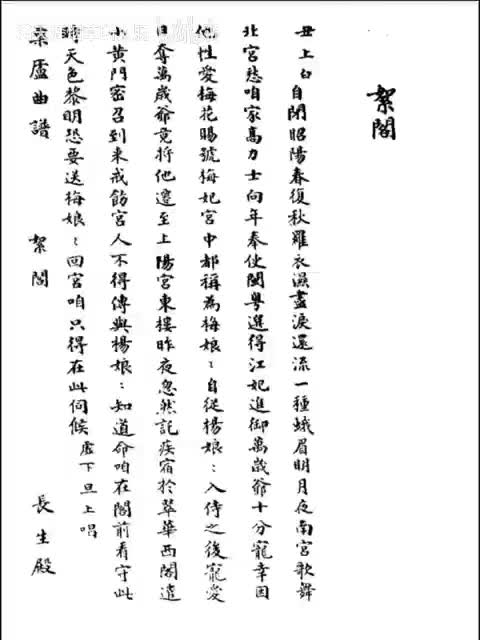 絮閣
丑上白自閉昭陽春復秋羅衣濕盡淚還流一種蛾眉明月夜南宮歌舞
北宮愁咱家高力士向年奉使閩粵選得江妃進御萬歲爺十分寵幸因
他性愛梅花賜號梅妃宮中都稱為梅娘〻自從楊娘〻入侍之後寵愛
日奪萬歲爺竟將他遷至上陽宮東樓昨夜忽然託疾宿於翠華西閣遣
小黃門密召到來戒飭宮人不得傳與楊娘〻知道命咱在閣前看守此
時天色黎明恐要送梅娘〻回宮咱只得在此伺候虛下旦上唱
粟廬曲譜 絮閣 長生殿